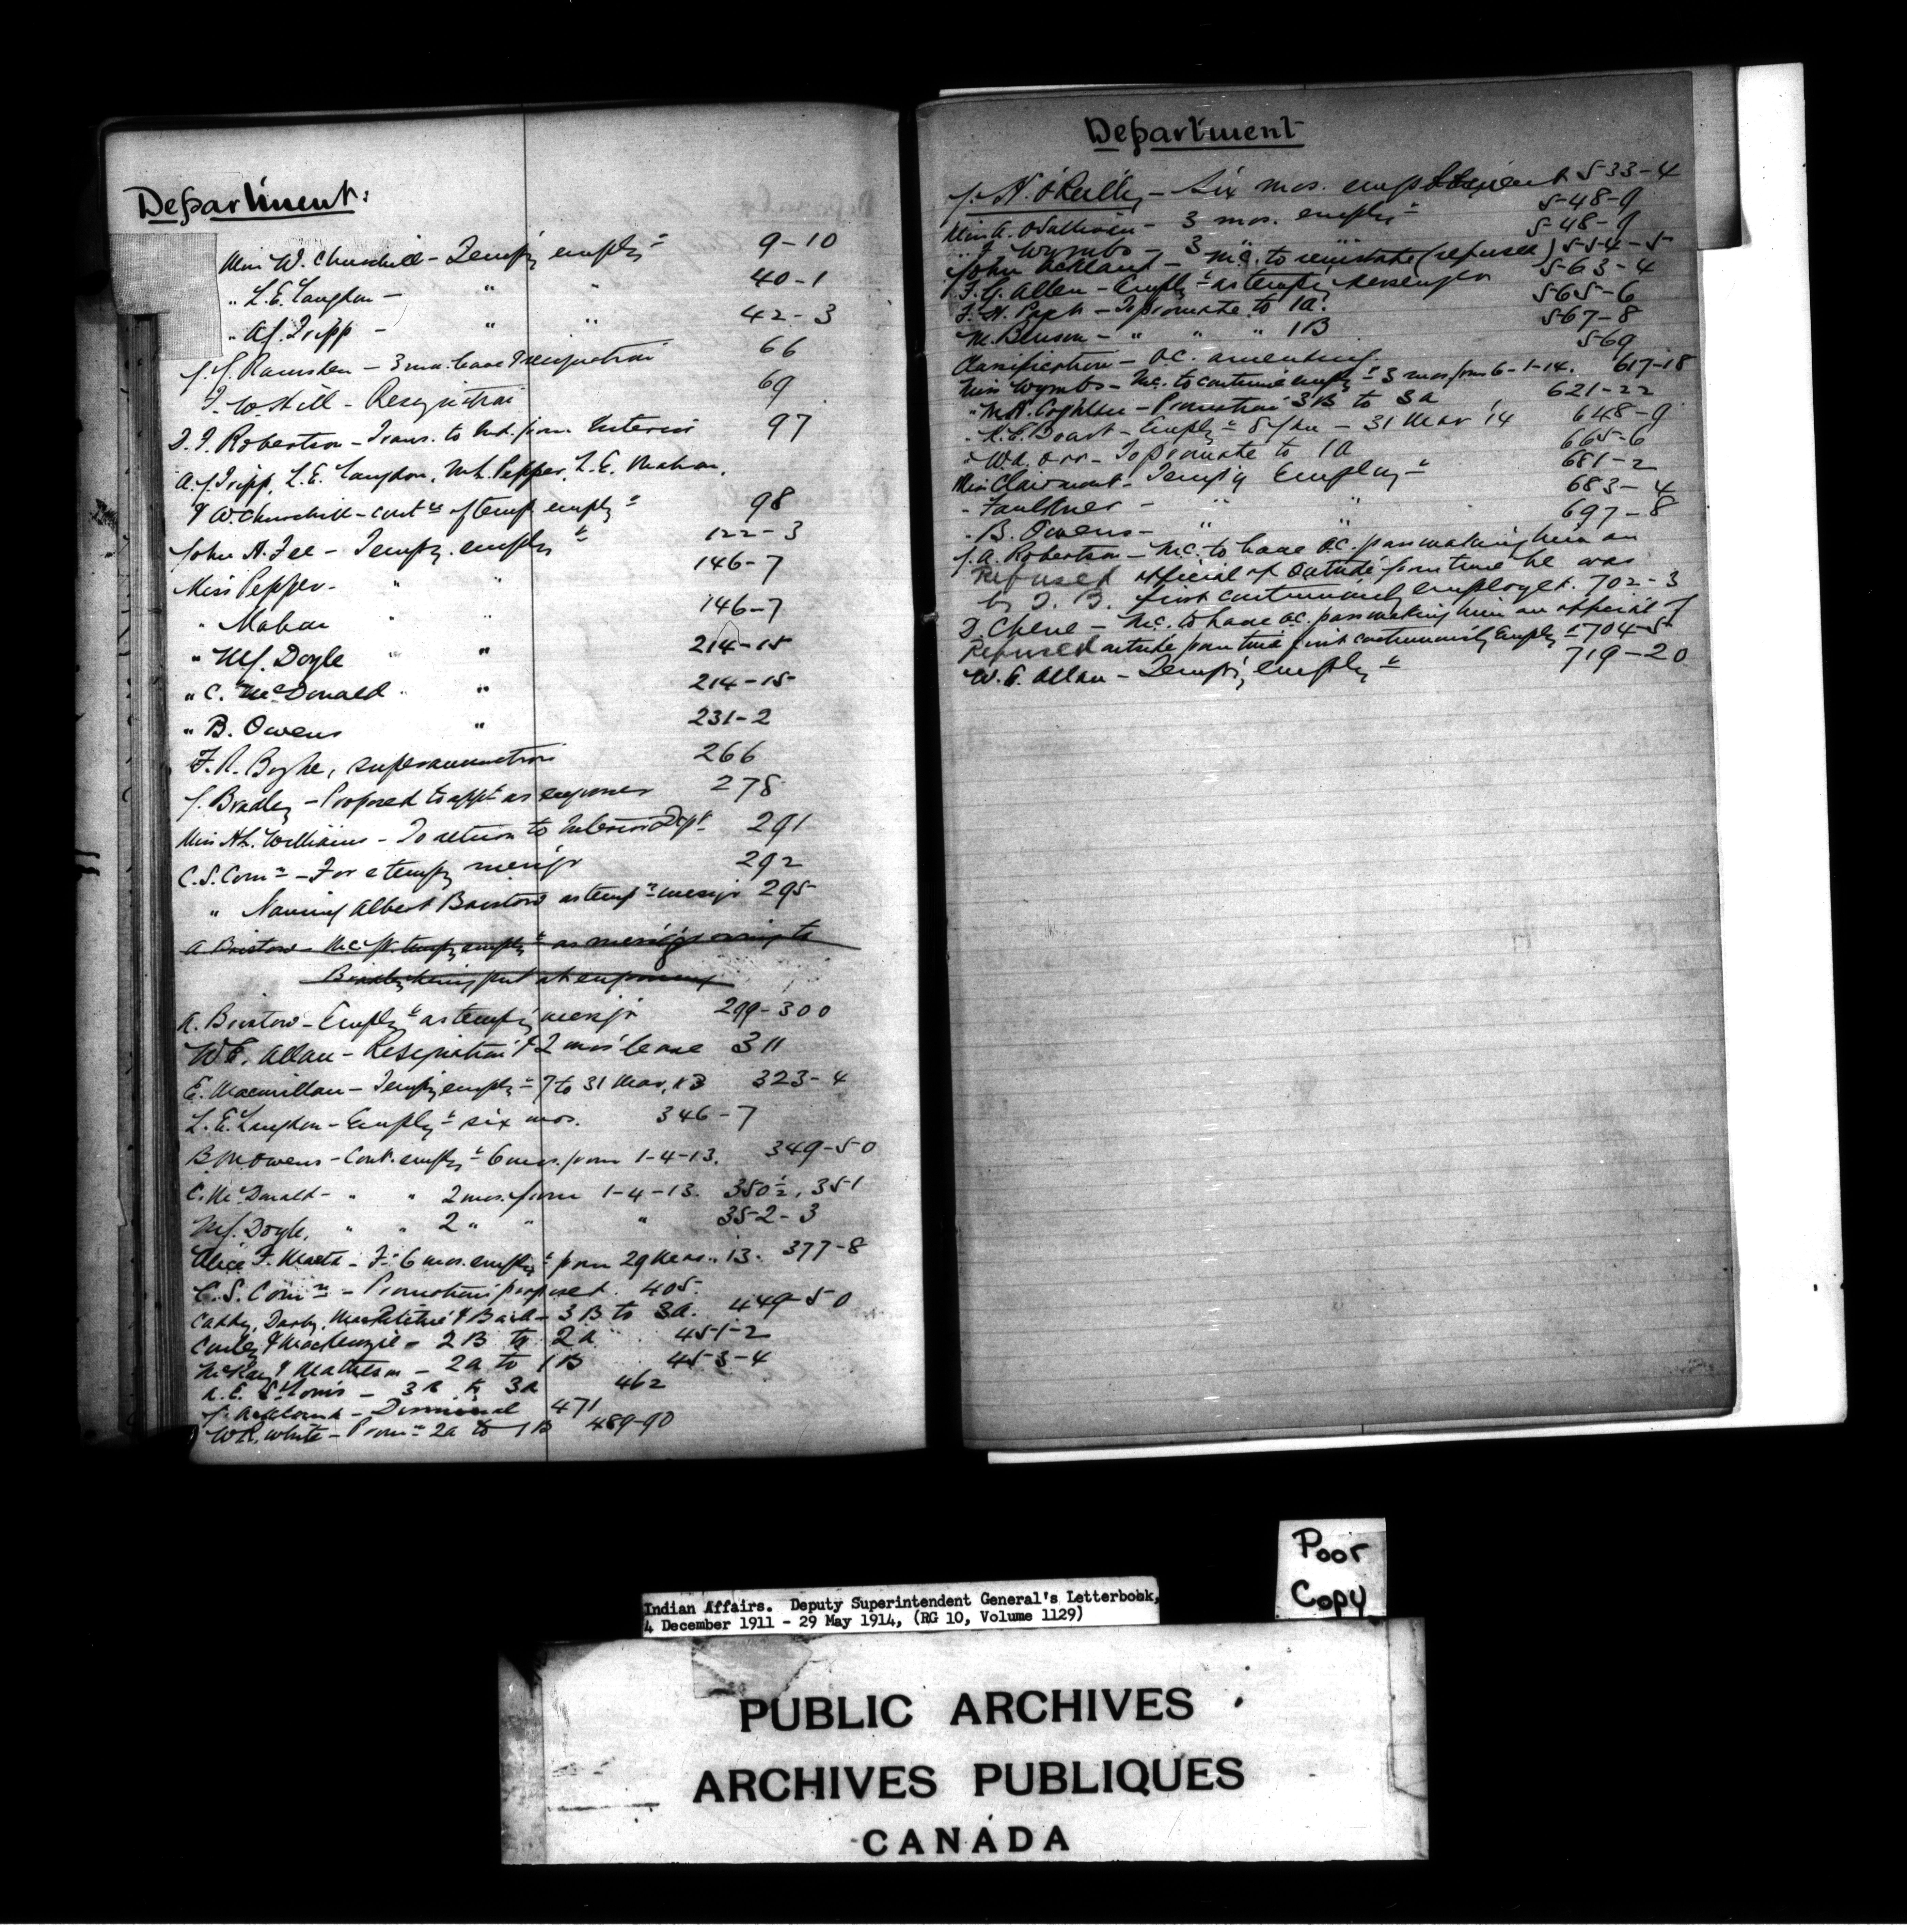 Department:
Miss W. Churchill - Tempy emplyt 9-10
" L.E. Langdon - " " 40-1
" A.J. Tripp - " " 42-3
J.J. Ramsden - 3 mos. leave & resignation 66
J.W. Hill - Resignation 69
D.J. Robertson - Trans. to Ind. from Interior 97
A.J. Tripp, L.E. Langdon, M.L. Pepper, L.E. Mahon,
& W. Churchill - contn of temp. emplyt 98
John A. Fee - Tempy. emplyt 122-3
Miss Pepper - " " 146-7
" Mahon " " 146-7
" M.J. Doyle " " 214-15
" C. McDonald " " 214-15
" B. Owens " 231-2
F.R. Byshe, superannuation 266
J. Bradley - Proposed to appt as engrosser 278
Miss A.L. Williams - To return to Interior Dept 291
C.S. Comn - For a tempy messgr 292
" Naming Albert Bristow as tempy messgr 295
A. Bristow - M.C. for tempy emplyt as messgr owing to
Bradley being put at engrossing
A. Bristow - Emplyt as tempy messgr 299-300
W.E. Allan - Resignation & 2 mos' leave 311
E. Macmillan - Tempy emplyt 7 to 31 Mar, 13 323-4
L.E. Langdon - Emplyt six mos. 346-7
B.M. Owens - Cont. emplyt 6 mos. from 1-4-13. 349-50
C. McDonald - " " 2 mos. from 1-4-13. 350½, 351
M.J. Doyle, " " 2 " " " 352-3
Alice F. - 6 mos. emplyt from 29 13. 377-8
C.S. Comn - Promotions proposed. 405.
Caddy, Darby, & - 3B to 3A. 449-50
& Mackenzie - 2B to 2A 451-2
McKay & Matheson - 2A to 1B 453-4
A.E. St. Louis - 3B to 3A 462
J. Ackland - Dismissal 471
W.R. White - Promn 2A to 1B 489-90
Department
J.H. O'Reilly - Six mos. employment 533-4
Miss A. O'Sullivan - 3 mos. emplyt 548-9
" J. Wymbs - 3 " " 548-9
John Ackland - M.C. to reinstate (refused) 554-5
F.G. Allen - Emplyt as tempy messenger 563-4
F.H. - To promote to 1A. 565-6
M. Benson - " " " 1B 567-8
Classification - O.C. amending. 569
Miss Wymbs - M.C. to continue emplyt 3 mos. from 6-1-14. 617-18
" M.A. Coghlan - Promotion 3B to 3A 621-22
" K.E. Boast - Emplyt 8 Jan - 31 Mar '14 648-9
" W.A. Orr - To promote to 1A 665-6
Miss Clairmont - Tempy Employt 681-2
" Faulkner - " " 683-4
" B. Owens - " " 697-8
J.A. Robertson - M.C. to have O.C. pass making him an
Refused official of outside from time he was
by T.B. first continuously employed. 702-3
D. Chene - M.C. to have O.C. pass making him an official of
Refused outside from time first continuously emplyt 704-5
W.E. Allan - Tempy emplyt 719-20
Poor
Copy
Indian Affairs. Deputy Superintendent General's Letterbook,
4 December 1911 - 29 May 1914, (RG 10, Volume 1129)
PUBLIC ARCHIVES
ARCHIVES PUBLIQUES
CANADA